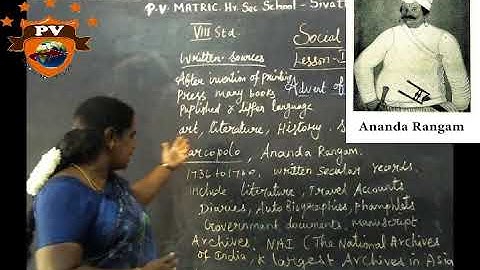 PV
P.V. MATRIC. Hr. Sec School - Sivatt
VIII Std.
Social
Written sources
Lesson-I
After invention of printing
Advert of
Press many books
Puplished & differ language
art, literature, History. S
arcopolo, Ananda Rangam.
1736 to 1760, written secular records.
Include literature, Travel Accounts
Diaries, Auto Biographies, Phamplets
Government documents, manuscript
Archives. NAI (The National Archives
of India, & largest Archives in Asia
Ananda Rangam